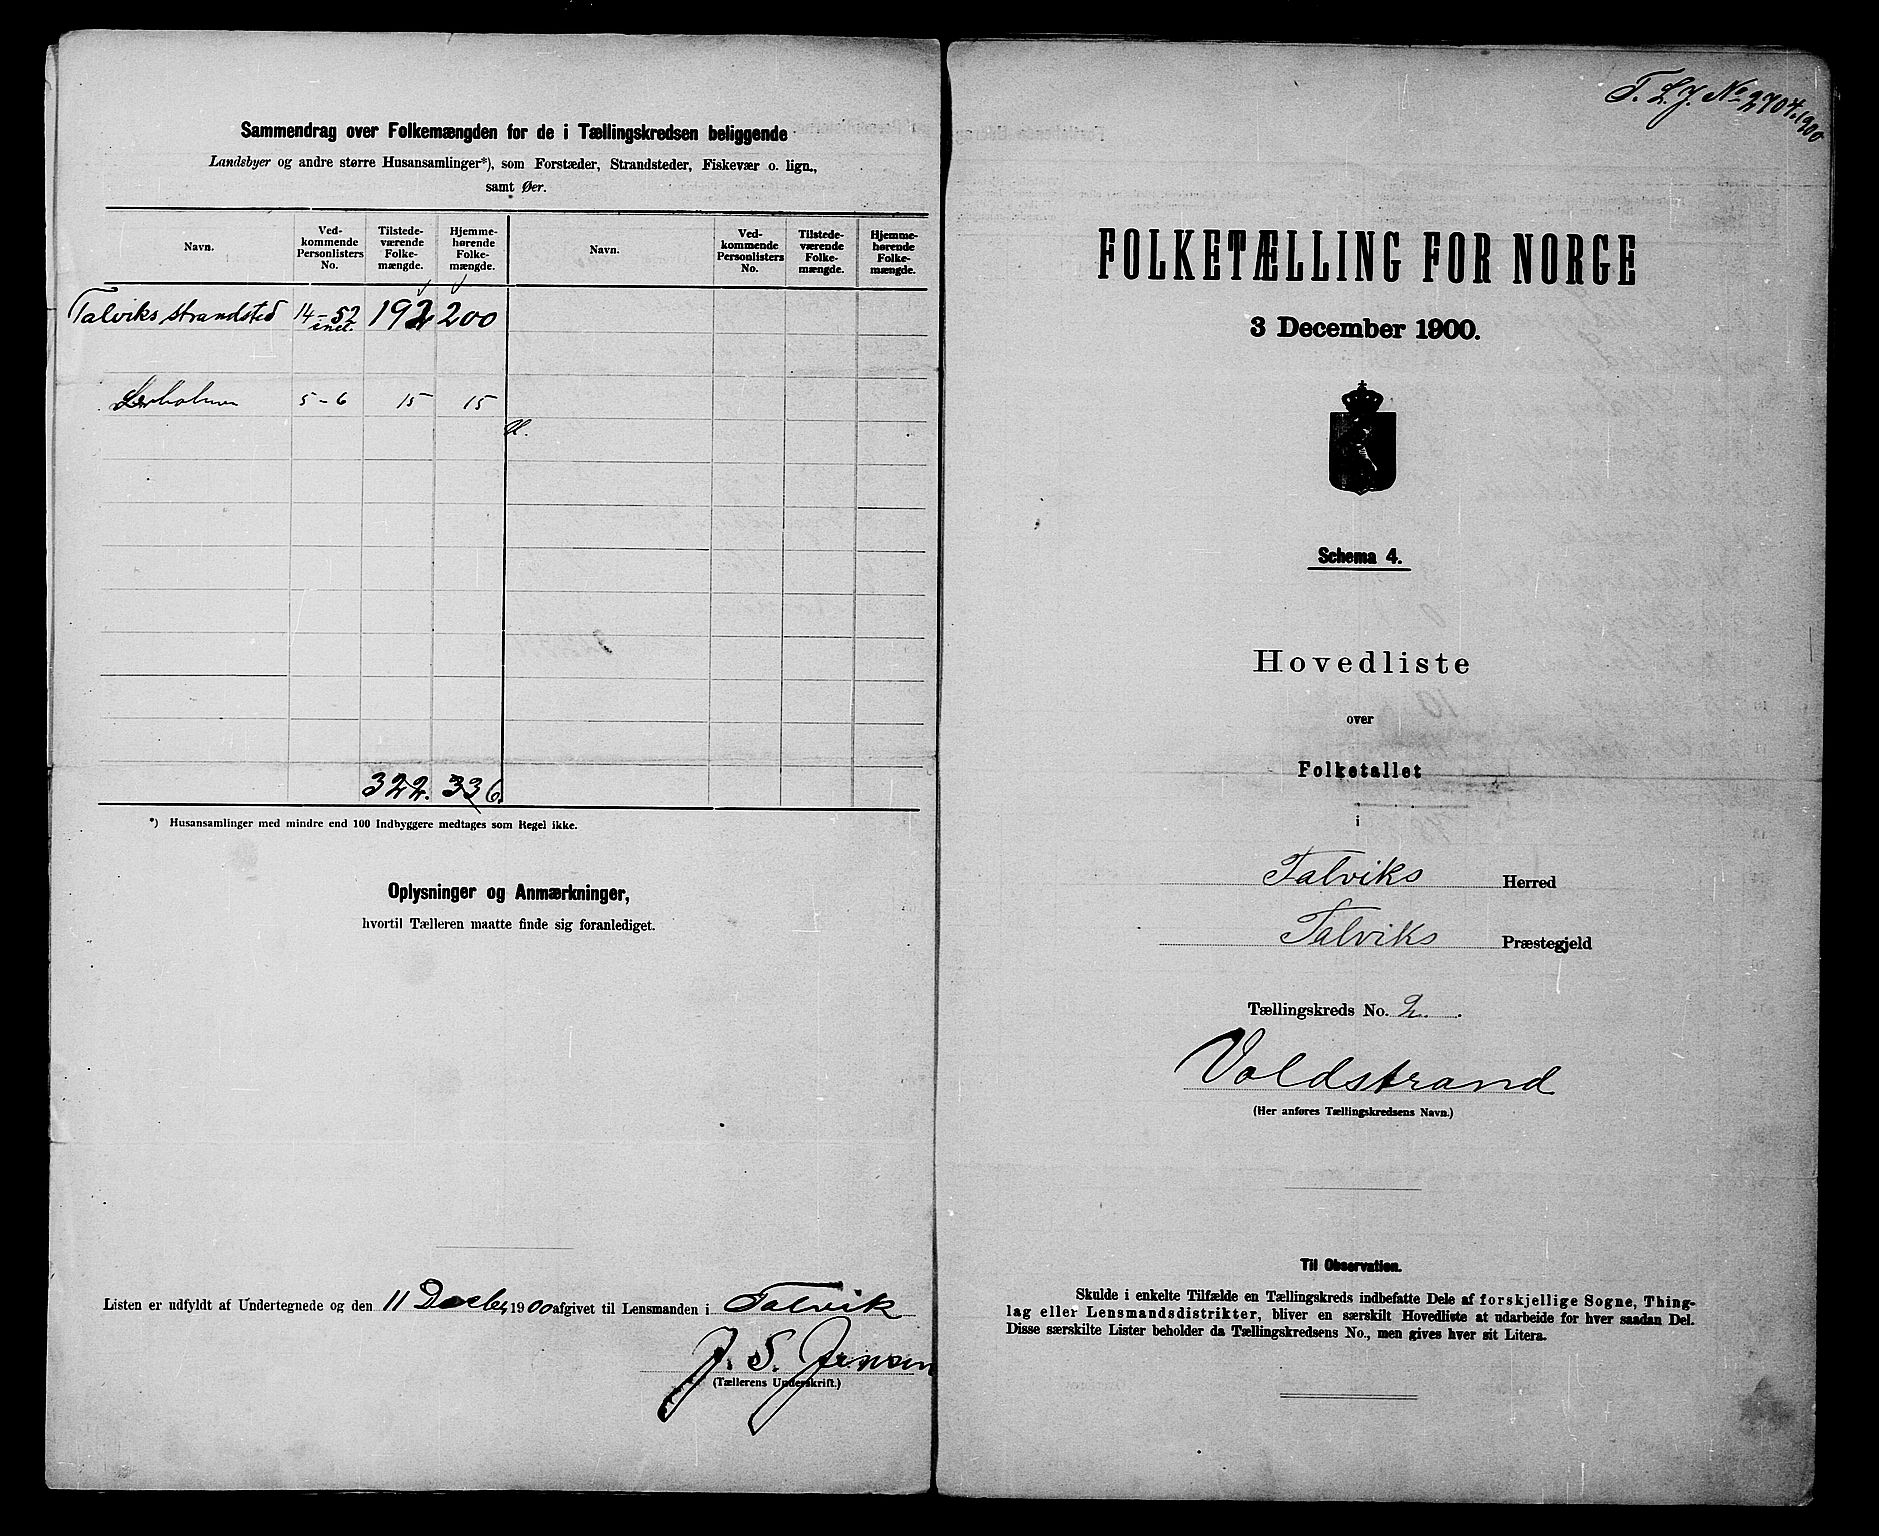 Sammendrag over Folkemængden for de i Tællingskredsen beliggende
Landsbyer og andre større Husansamlinger*), som Forstæder, Strandsteder, Fiskevær o. lign.,
samt Øer.
Navn. Ved-kommende Personlisters No. Tilstede-værende Folke-mængde. Hjemme-hørende Folke-mængde. Navn. Ved-kommende Personlisters No. Tilstede-værende Folke-mængde. Hjemme-hørende Folke-mængde.
Talviks strandsted 14-52 inel. 192 200
5-6 15 15
322. 336.
*) Husansamlinger med mindre end 100 Indbyggere medtages som Regel ikke.
Oplysninger og Anmærkninger,
hvortil Tælleren maatte finde sig foranlediget.
Listen er udfyldt af Undertegnede og den 11 Decbr 1900 afgivet til Lensmanden i Talvik
J. S. Jensen
(Tællerens Underskrift.)
T. L. J. No 2704.1900
FOLKETÆLLING FOR NORGE
3 December 1900.
Schema 4.
Hovedliste
over
Folketallet
i
Talviks Herred
Talviks Præstegjeld
Tællingskreds No. 2.
Voldstrand
(Her anføres Tællingskredsens Navn.)
Til Observation.
Skulde i enkelte Tilfælde en Tællingskreds indbefatte Dele af forskjellige Sogne, Thing-
lag eller Lensmandsdistrikter, bliver en særskilt Hovedliste at udarbeide for hver saadan Del.
Disse særskilte Lister beholder da Tællingskredsens No., men gives hver sit Litera.